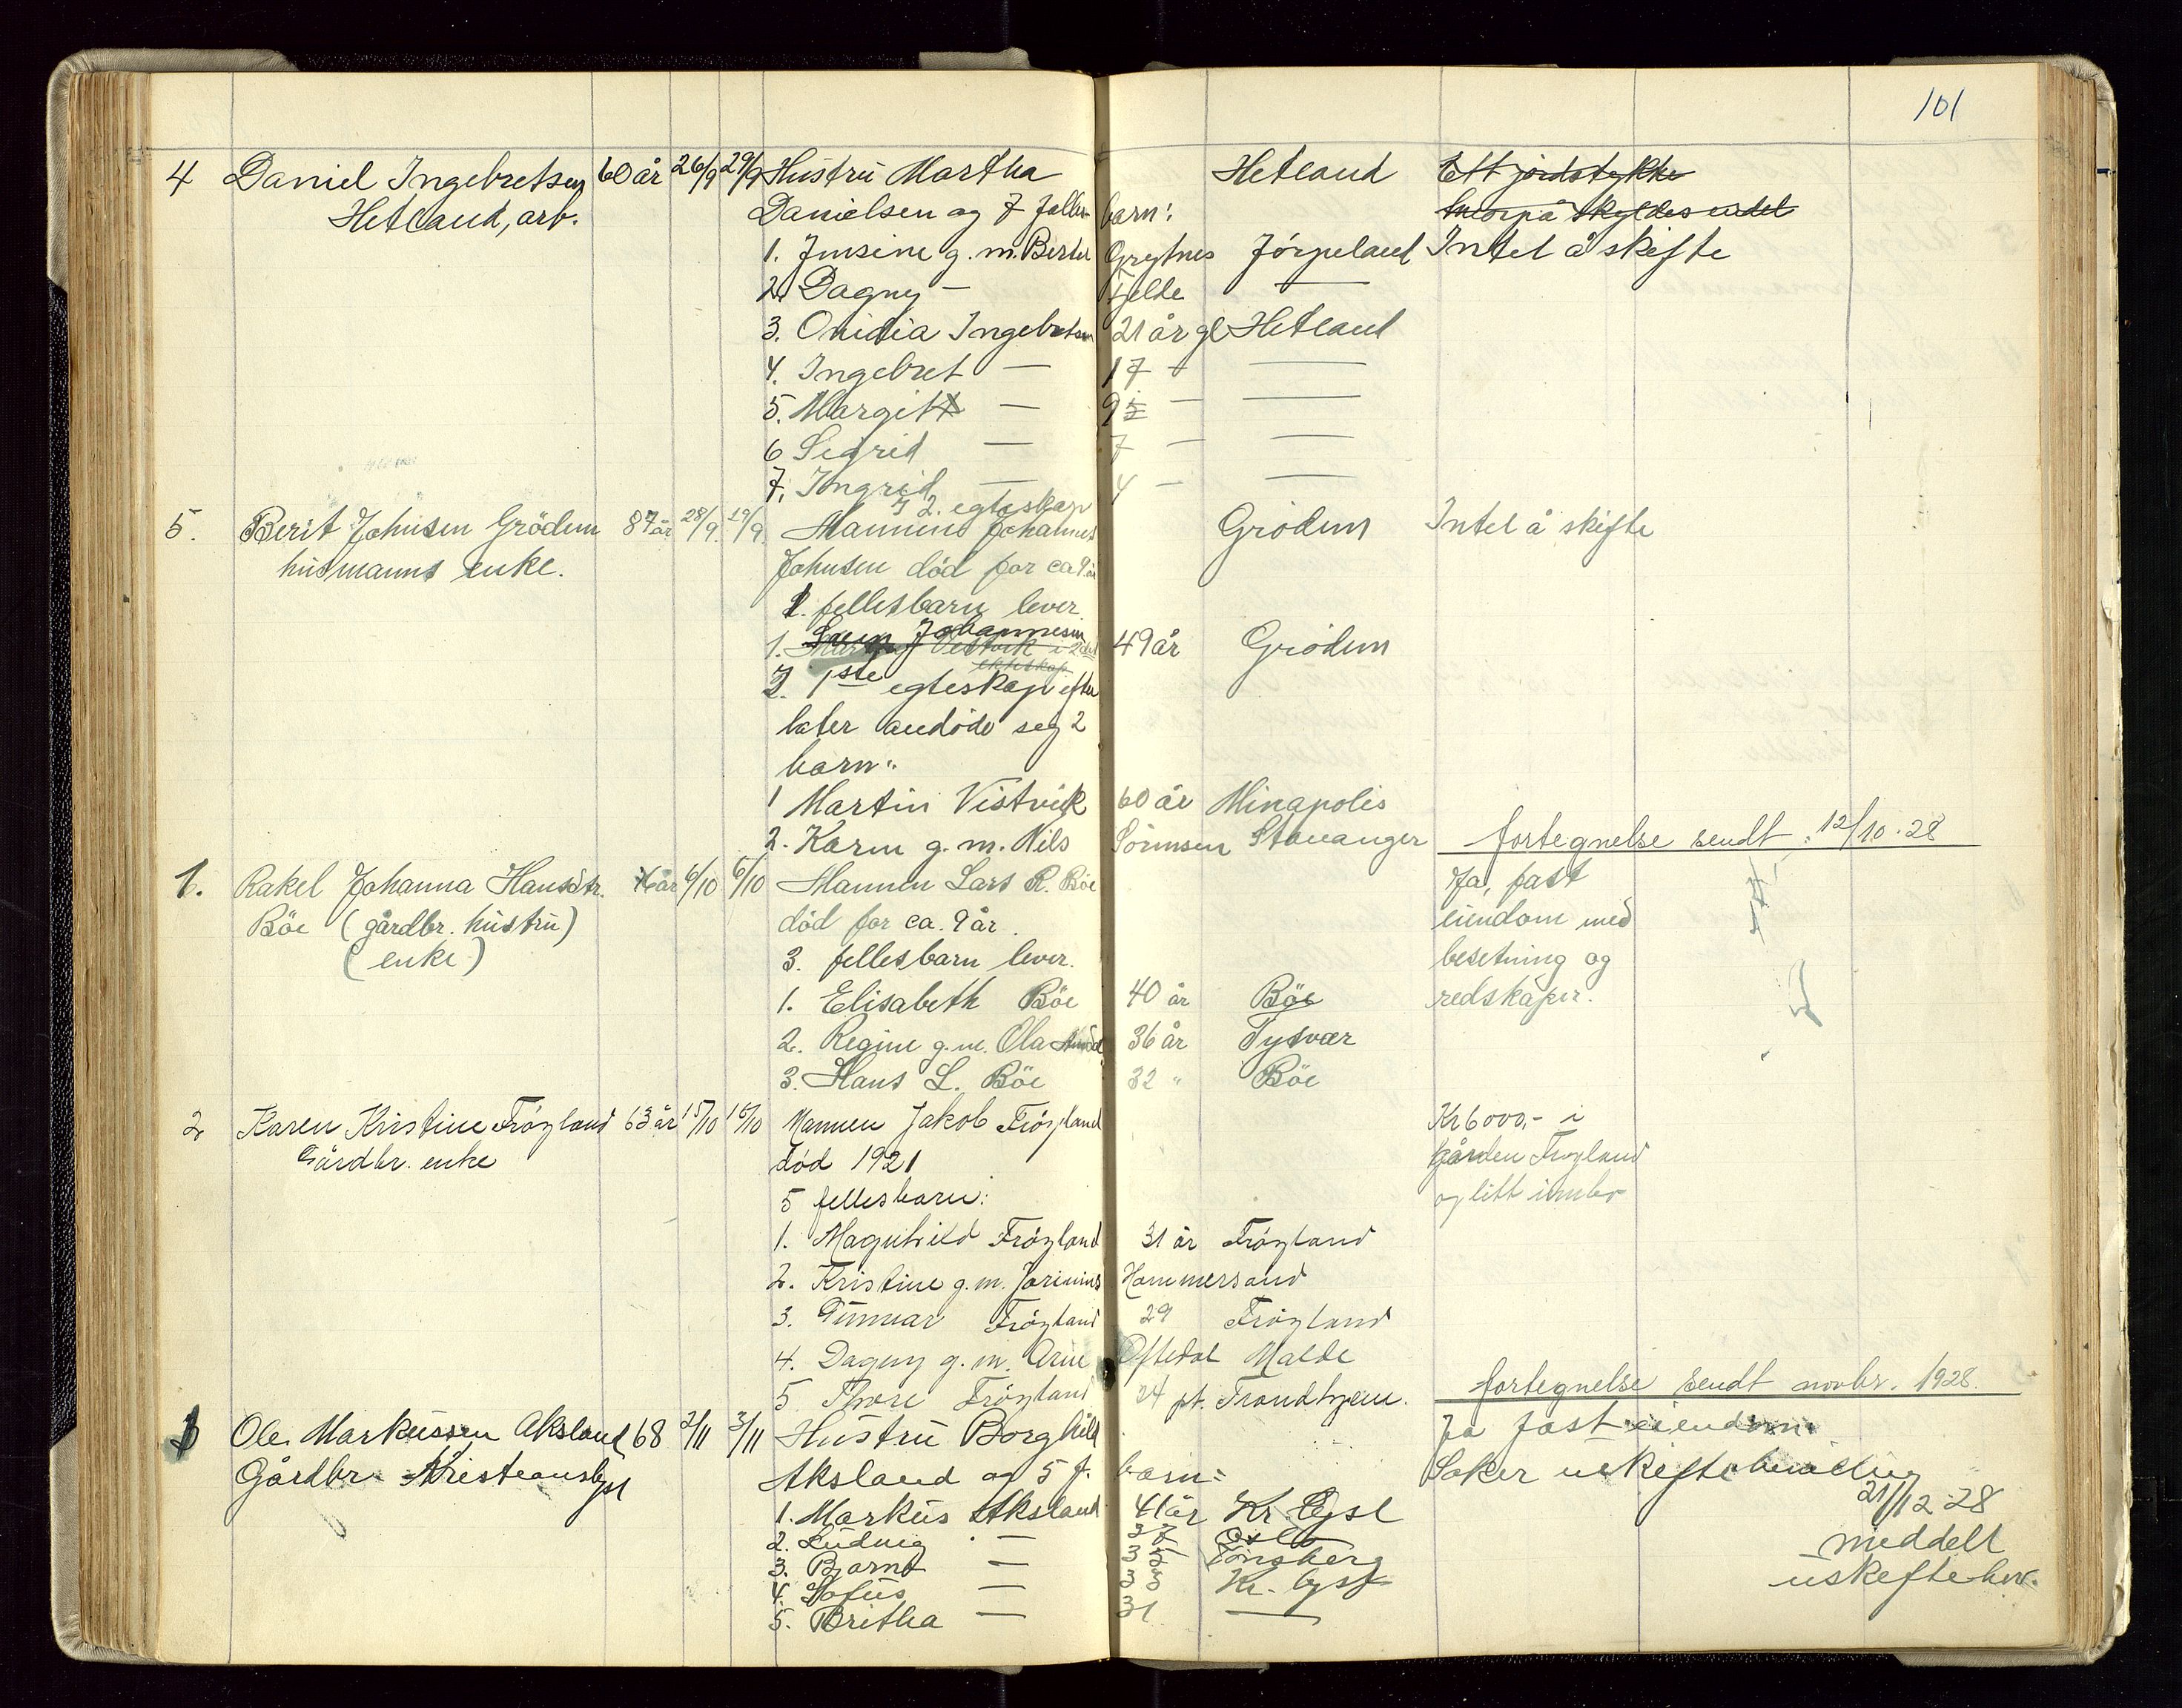 101
4 Daniel Ingebretsen 60 år 26/9 29/9 Hustru Martha Hetland Ett jordstykke
Hetland, arb. Danielsen og 7 felles barn: hvorpå skyldes endel
1. Jensine g. m. Bertel Grytnes Jørpeland Intet å skifte
2. Dagny — Fjelde —
3. Ovidia Ingebretsen 21 år gl Hetland
4. Ingebret — 17 — —
5. Margit — 9 — —
6 Sigrid — 7 — —
7. Ingrid — 4 — —
I 2. egteskap
5. Berit Johnsen Grödem 87 år 28/9 29/9 Mannen Johannes Grödem Intet å skifte
husmanns enke. Johnsen död for ca 9 år
1. fellesbarn lever
1. Johannesen 49 år Grödem
Vestvik i 2det
ekteskap
I 1ste egteskap efter
later avdöde seg 2
barn:
1 Martin Vistvik 60 år Minapolis
2. Karen g. m. Nils Sörensen Stavanger fortegnelse sendt 12/10. 28
1. Rakel Johanna Hansdtr. 76 år 6/10 6/10 Mannen Lars R. Böe Ja, fast
Böe (gårdbr. hustru) död for ca. 9 år. eiendom med
(enke) 3. fellesbarn lever. besetning og
1. Elisabeth Böe 40 år Böe redskaper.
2. Regine g. m. Ola 36 år Tysvær
3. Hans L. Böe 32 " Böe
2 Karen Kristine Fröyland 63 år 15/10 16/10 Mannen Jakob Fröyland Kr 6000,- i
Gårdbr. enke död 1921 gården Fröyland
5 fellesbarn: og litt innbo
1. Magnhild Fröyland 31 år Fröyland
2. Kristine g. m. Jorinius Hammersand
3. Gunnar Fröyland 29 Fröyland
4. Dagny g. m. Arne Oftedal Malde
5. Thore Fröyland 24 pt. Trondhjem. fortegnelse sendt novbr. 1928.
1 Ole Markussen Aksland 68 2/11 3/11 Hustru Borghild Ja fast eiendom
Gårdbr. Kristianslyst Aksland og 5 f. barn: Søker uskiftebevilling
1. Markus Aksland 41 år Kr. lyst 21/12 28
2. Ludvig — 37 Oslo meddelt
3. Bjarne — 35 Tönsberg uskiftebev.
4. Sofus — 33 Kr. lyst
5. Britha — 31 —